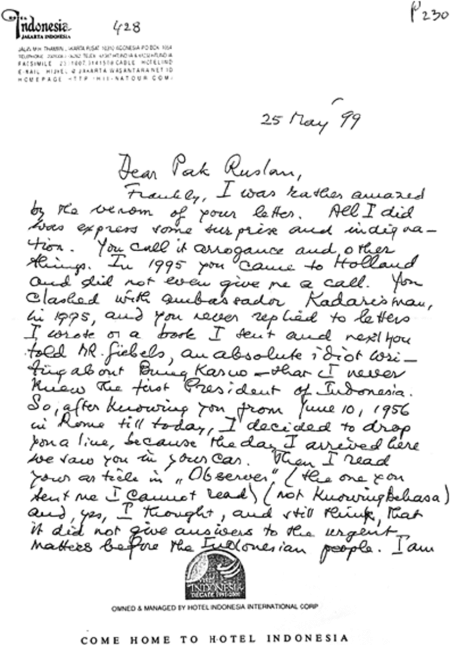 Indonesia
JAKARTA INDONESIA
428
P 230
25 May '99
Dear Pak Ruslan,
Frankly, I was rather amazed
by the venom of your letter. All I did
was express some surprise and indigna-
tion. You call it arrogance and other
things. In 1995 you came to Holland
and did not even give me a call. You
clashed with ambassador Kadarisman,
in 1995, and you never replied to letters
I wrote or a book I sent and next you
told Mr. Giebels, an absolute idiot wri-
ting about Bung Karno - that I never
knew the first President of Indonesia.
So, after knowing you from June 10, 1956
in Rome till today, I decided to drop
you a line, because the day I arrived here
we saw you in your car. Then I read
your article in „Observer" (the one you
sent me I cannot read) (not knowing Bahasa)
and, yes, I thought, and still think, that
it did not give answers to the urgent
matters before the Indonesian people. I am
OWNED & MANAGED BY HOTEL INDONESIA INTERNATIONAL CORP
COME HOME TO HOTEL INDONESIA